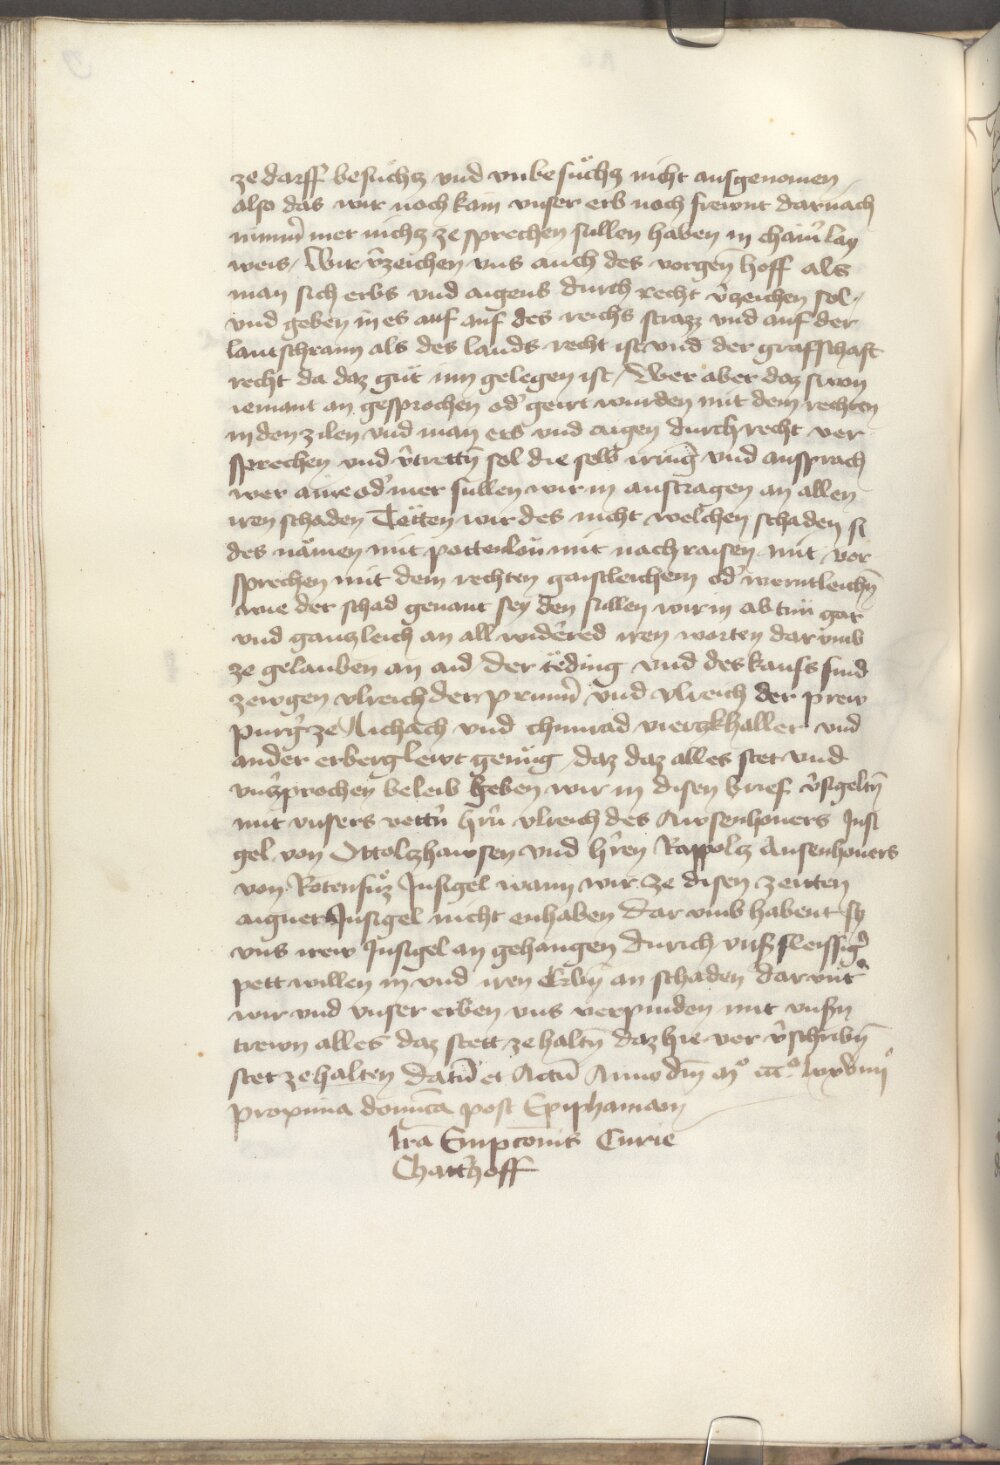 ze darff besuͤchtz vnd vnbesuͤchtz nicht ausgenomen
also das wir noch kain vnser erb noch frewnt darnach
nimm̄ mer nichtz ze sprechen sullen haben in chain̄lay
weis / Wir v̄zeichen vns auch des vorgen̄ hoff als
man sich erbs vnd aigens durch recht v̄zeichen sol /
vnd geben in es auf auf des reichs strazz vnd auf der
lantschrann als des lands recht ist vnd der grafschaft
recht da daz guͤt inn gelegen ist / Wer aber daz si von
iemant an gesprochen od̓ geirt wurden mit dem rechten
in den zilen vnd man erb vnd aigen durch recht ver
sprechen vnd v̄trettn̄ sol die selb irrūg vnd ansprach
wer aine od̓ mer sullen wir in austragen an allen
iren schaden Taͤtten wir des nicht welchen schaden si
des naͤmen mit pottenlon mit nachraisen mit vor
sprechen mit dem rechten gaistleichem od̓ werntleichn̄
wie der schad genant sey den sullen wir in ab tuͤn gar
vnd gantzleich an all wid̓red iren worten dar vmb
ze gelauben an aid Der taͤding vnd des kaufs sind
zewgen vlreich der prunn̄ vnd vlreich der prew
purg̓ ze Aichach vnd chunrad viertzkhaller vnd
ander erberg lewt genuͤg daz daz alles stet vnd
vnz̓prochen beleib geben wir in disen brief v̄sigeltn̄
mit vnsers vettn̄ hr̄n vlreich des Awsenhouers Insi
gel von Ottoltzhawsen vnd hr̄en Rappoltz Ausenhouers
von Rotenfuͤz Insigel wann wir ze disen zeitten
aigner Insigel nicht enhaben Dar vmb habent sy
vns irew Insigel an gehangen durich vnß fleissig̓
pett willen in vnd iren Erbn̄ an schaden dar vnt̓
wir vnd vnser erben vns verpinden mit vnßn
trewn alles daz stett ze haltn̄ daz hie vor v̄schribn̄
stet ze halten Datū et Actū Anno dn̄i mͦ cccͦ lxxviiiiͦ
proxima domīca post Epiphaniam
lr̄a Empcōnis Curie
Chatt̓hoff